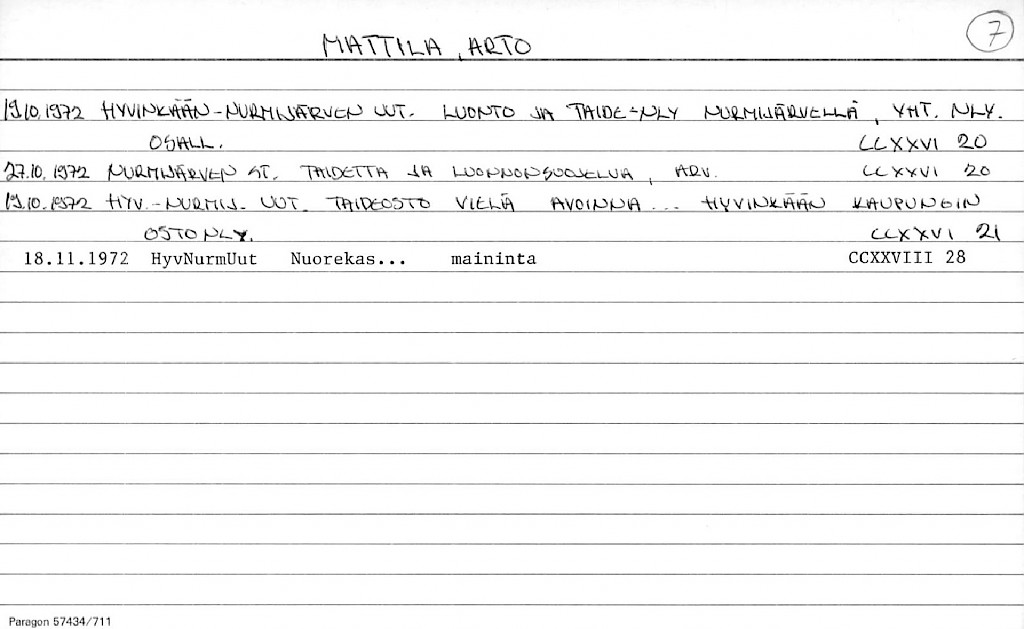 7
MATTILA, ARTO
19.10.1972 HYVINKÄÄN-NURMIJÄRVEN UUT. LUONTO JA TAIDE-NLY NURMIJÄRVELLÄ, YHT. NLY.
OSALL. CCXXVI 20
27.10.1972 NURMIJÄRVEN ST. TAIDETTA JA LUONNONSUOJELUA, ARV. CCXXVI 20
19.10.1972 HYV.-NURMIJ. UUT. TAIDEOSTO VIELÄ AVOINNA... HYVINKÄÄN KAUPUNGIN
OSTO NLY. CCXXVI 21
18.11.1972 HyvNurmUut Nuorekas... maininta CCXXVIII 28
Paragon 57434/711